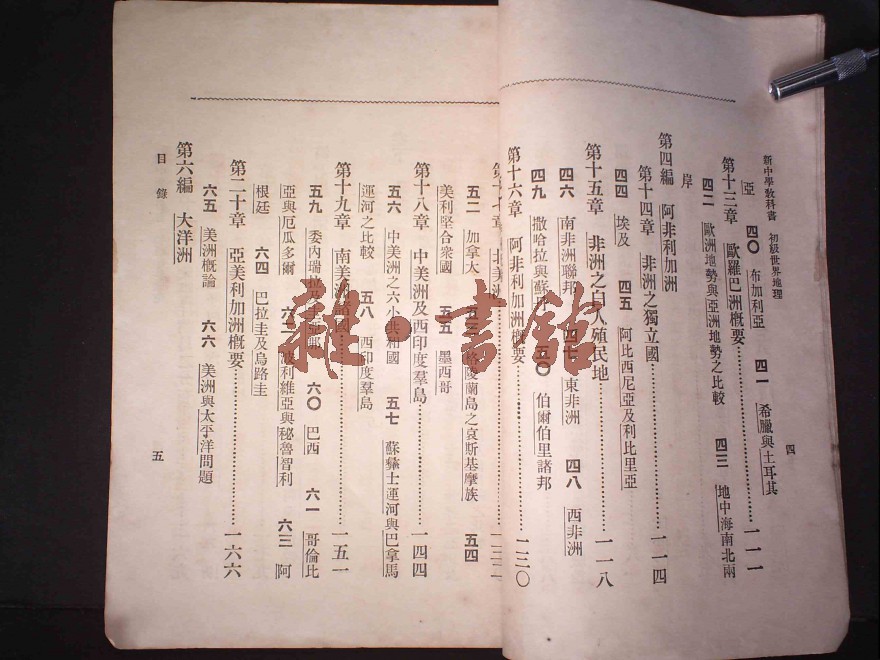 新中學敎科書　初級世界地理
四
亞　四〇　布加利亞　四一　希臘與土耳其
第十三章　歐羅巴洲概要…………一一一
四二　歐洲地勢與亞洲地勢之比較　四三　地中海南北兩
岸
第四編　阿非利加洲
第十四章　非洲之獨立國…………一一四
四四　埃及　四五　阿比西尼亞及利比里亞
第十五章　非洲之白人殖民地…………一一八
四六　南非洲聯邦　四七　東非洲　四八　西非洲
四九　撒哈拉與蘇　五〇　伯爾伯里諸邦
第十六章　阿非利加洲概要…………一三〇
第十七章　北美洲…………一三二
五二　加拿大　五三　格陵蘭島之哀斯基摩族　五四
美利堅合衆國　五五　墨西哥
第十八章　中美洲及西印度羣島…………一四四
五六　中美洲之六小共和國　五七　蘇彝士運河與巴拿馬
運河之比較　五八　西印度羣島
第十九章　南美洲諸國…………一五一
五九　委內瑞拉及圭亞那　六〇　巴西　六一　哥倫比
亞與厄瓜多爾　六二　波利維亞與秘魯智利　六三　阿
根廷　六四　巴拉圭及烏路圭
第二十章　亞美利加洲概要…………一六六
六五　美洲概論　六六　美洲與太平洋問題
第六編　大洋洲
目錄
五
雜·書館